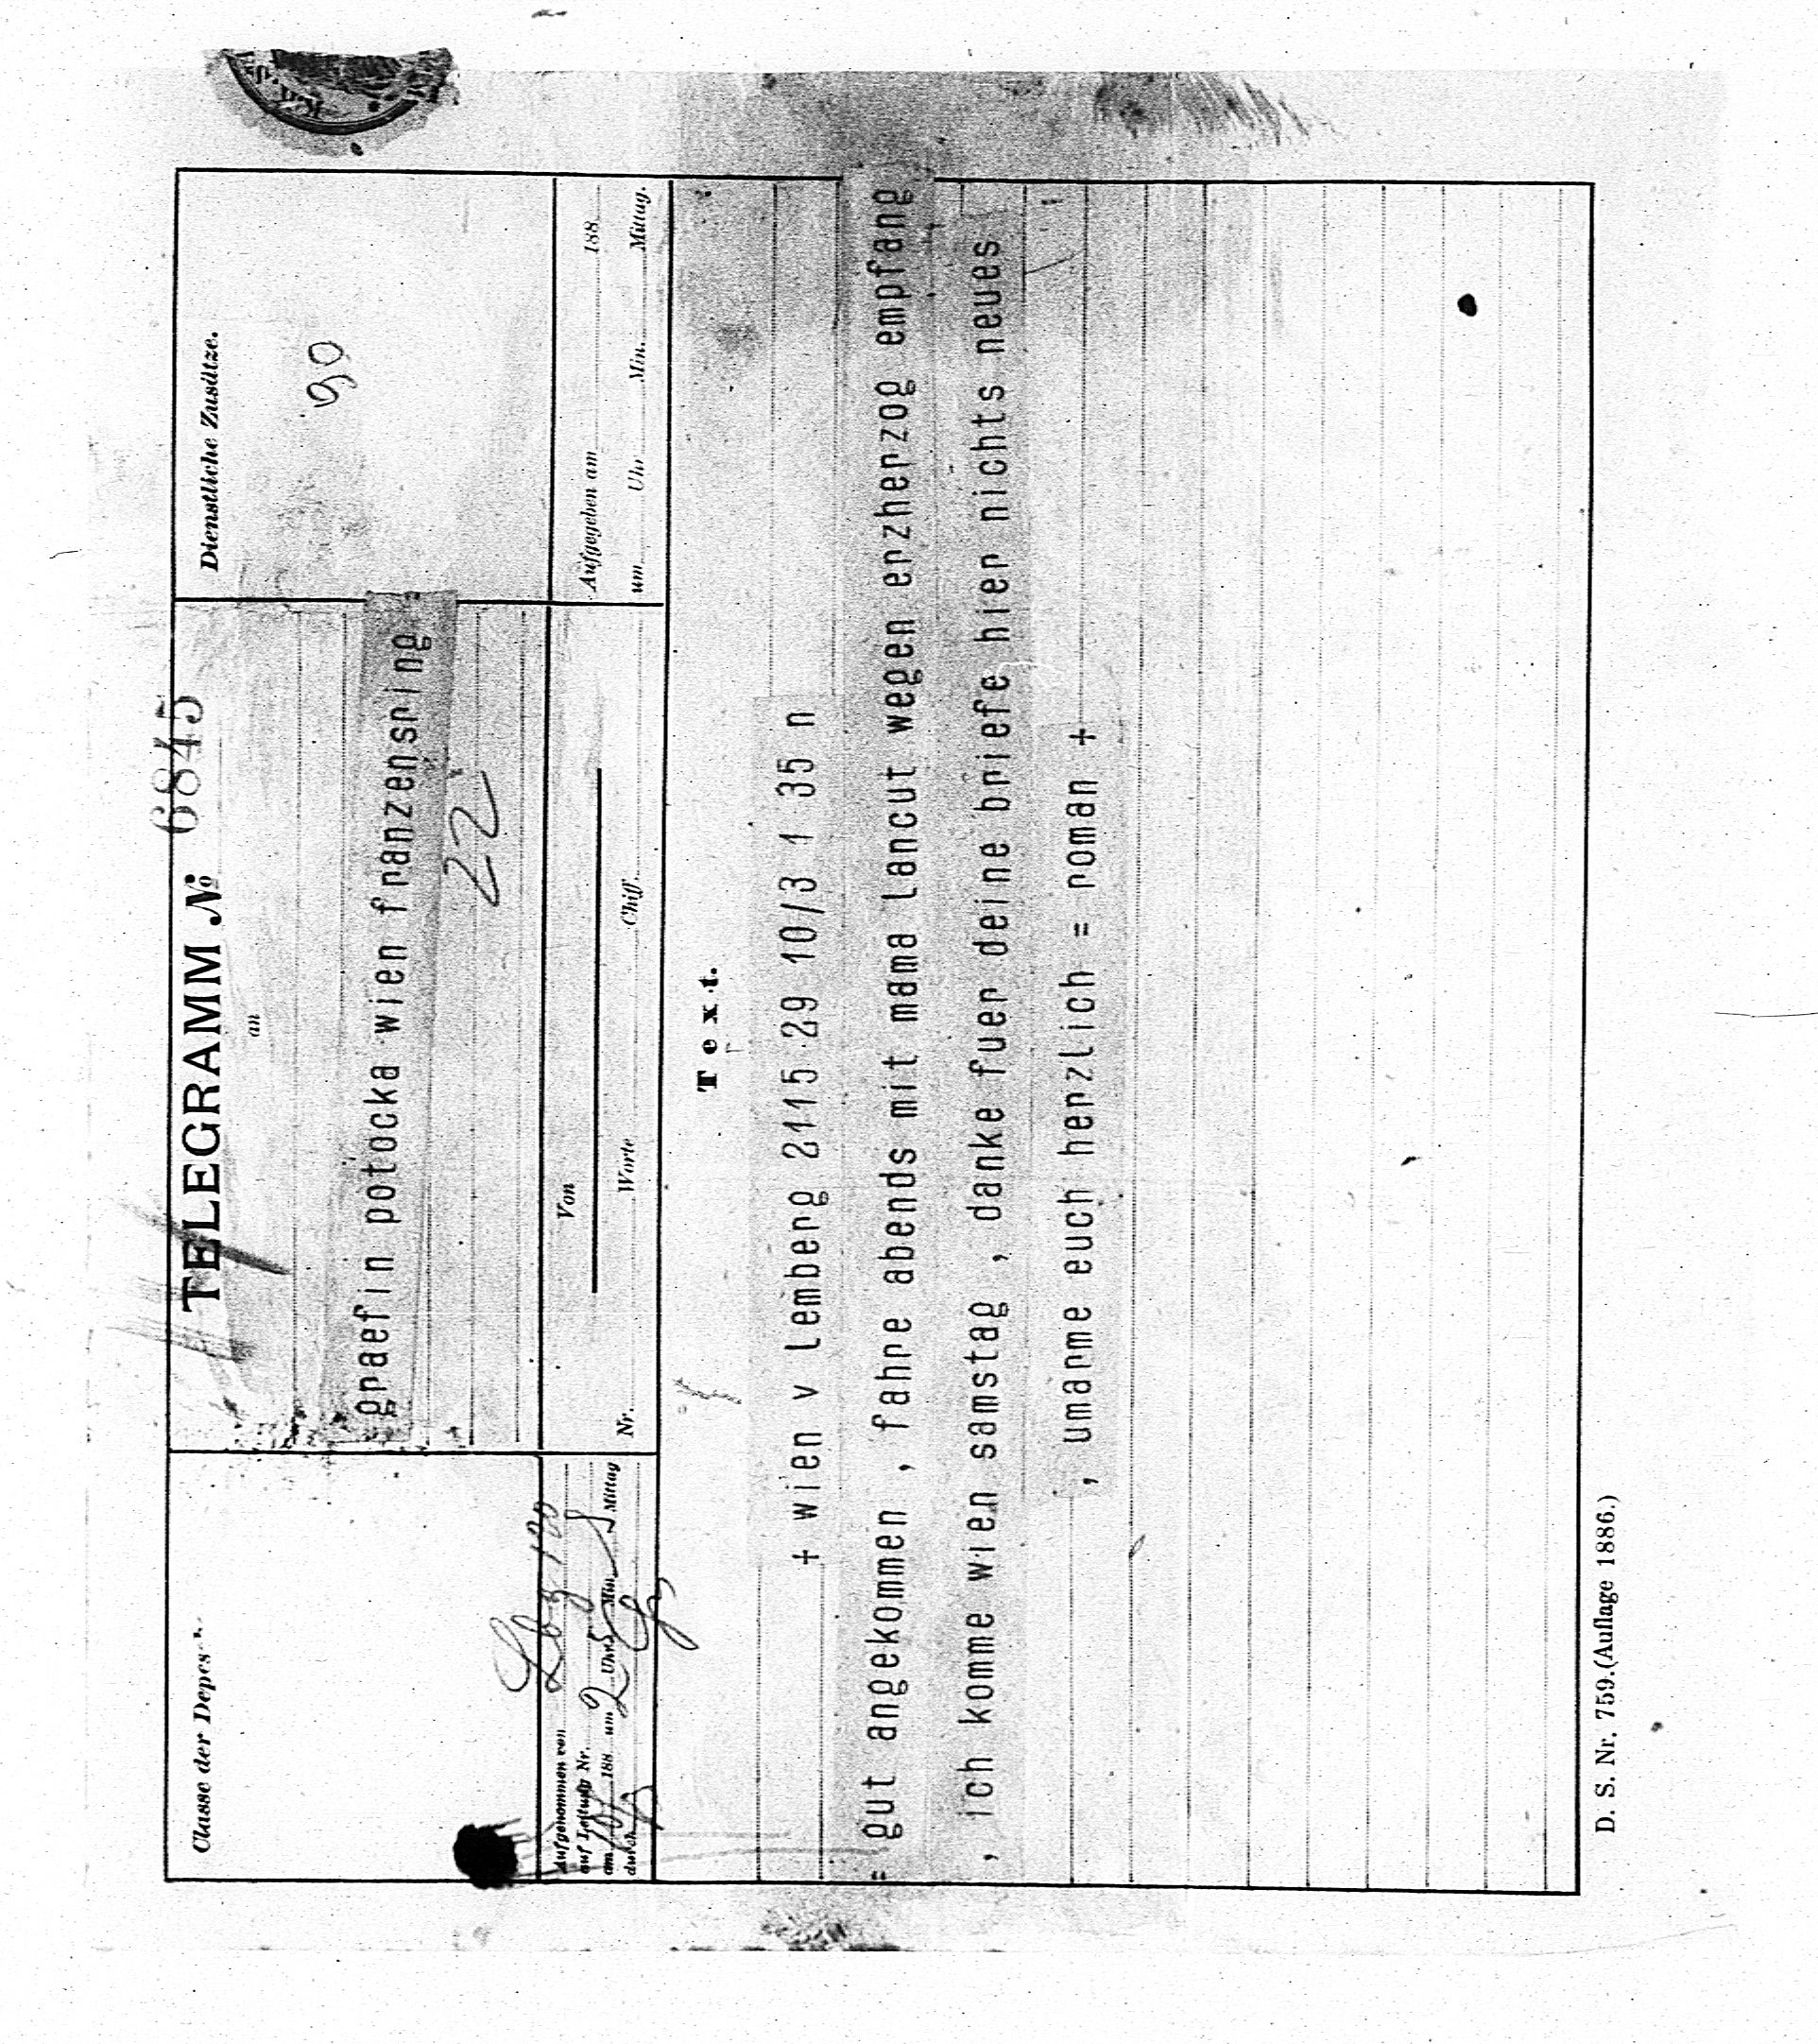 Classe der Depesch
TELEGRAMM № 6845
an
graefin potocka wien franzensring
22
Dienstliche Zusätze.
90
Aufgenommen von
auf Leitung Nr.
am 10/ 188 um 2 Uhr 5 Min. Mittag
durch
Von
Nr. Worte Chiff.
Aufgegeben am 188
um Uhr Min. Mittag.
Text.
+ wien v lemberg 2115 29 10/3 1 35 n
= gut angekommen , fahre abends mit mama lancut wegen erzherzog empfang
, ich komme wien samstag , danke fuer deine briefe hier nichts neues
, umarme euch herzlich = roman +
D. S. Nr. 759.(Auflage 1886.)